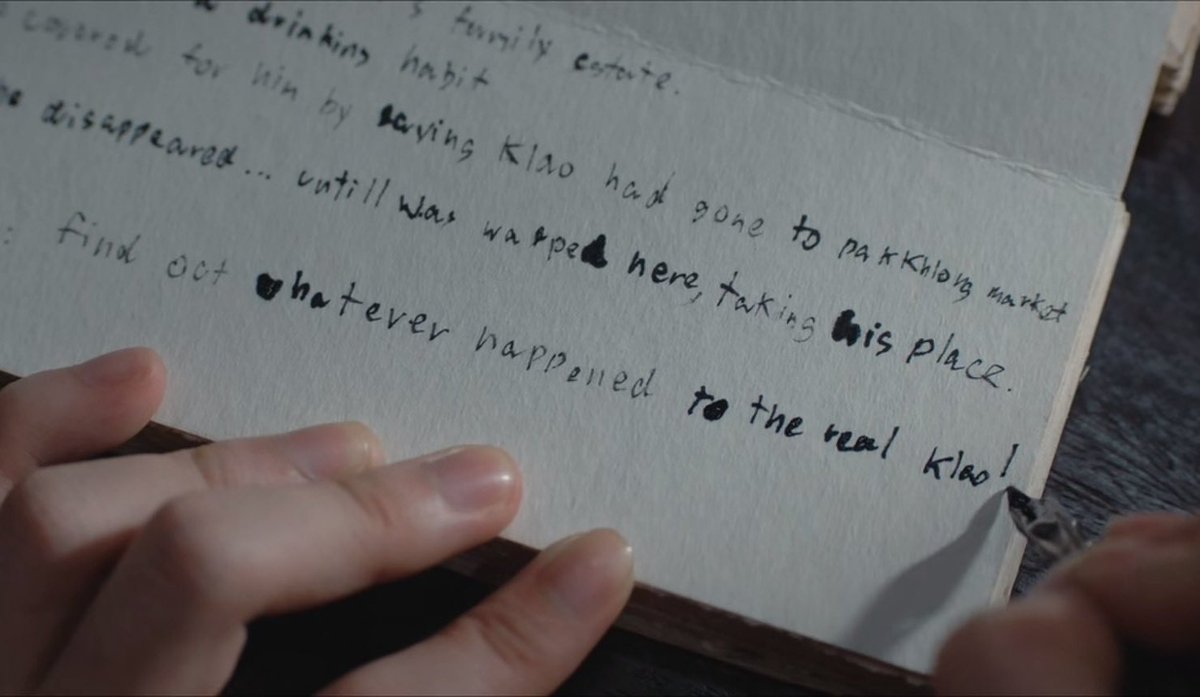 family estate.
drinking habit
covered for him by saying Klao had gone to pakkhlong market
disappeared... untill was warped here, taking his place.
: find oct whatever happened to the real Klao!